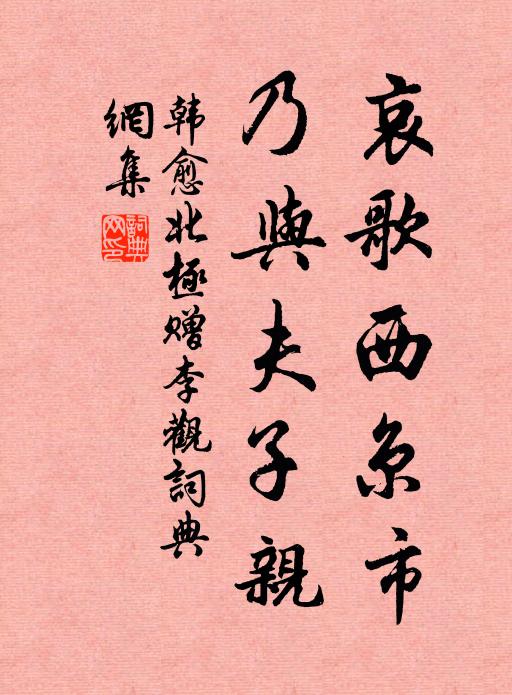 哀歌西京市
乃與夫子親
韩愈北極赠李觀詞典
網集
詞典網印